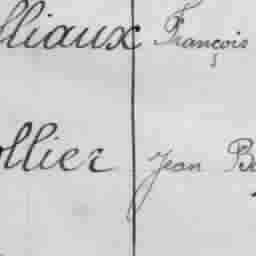 lliaux François
ollier Jean